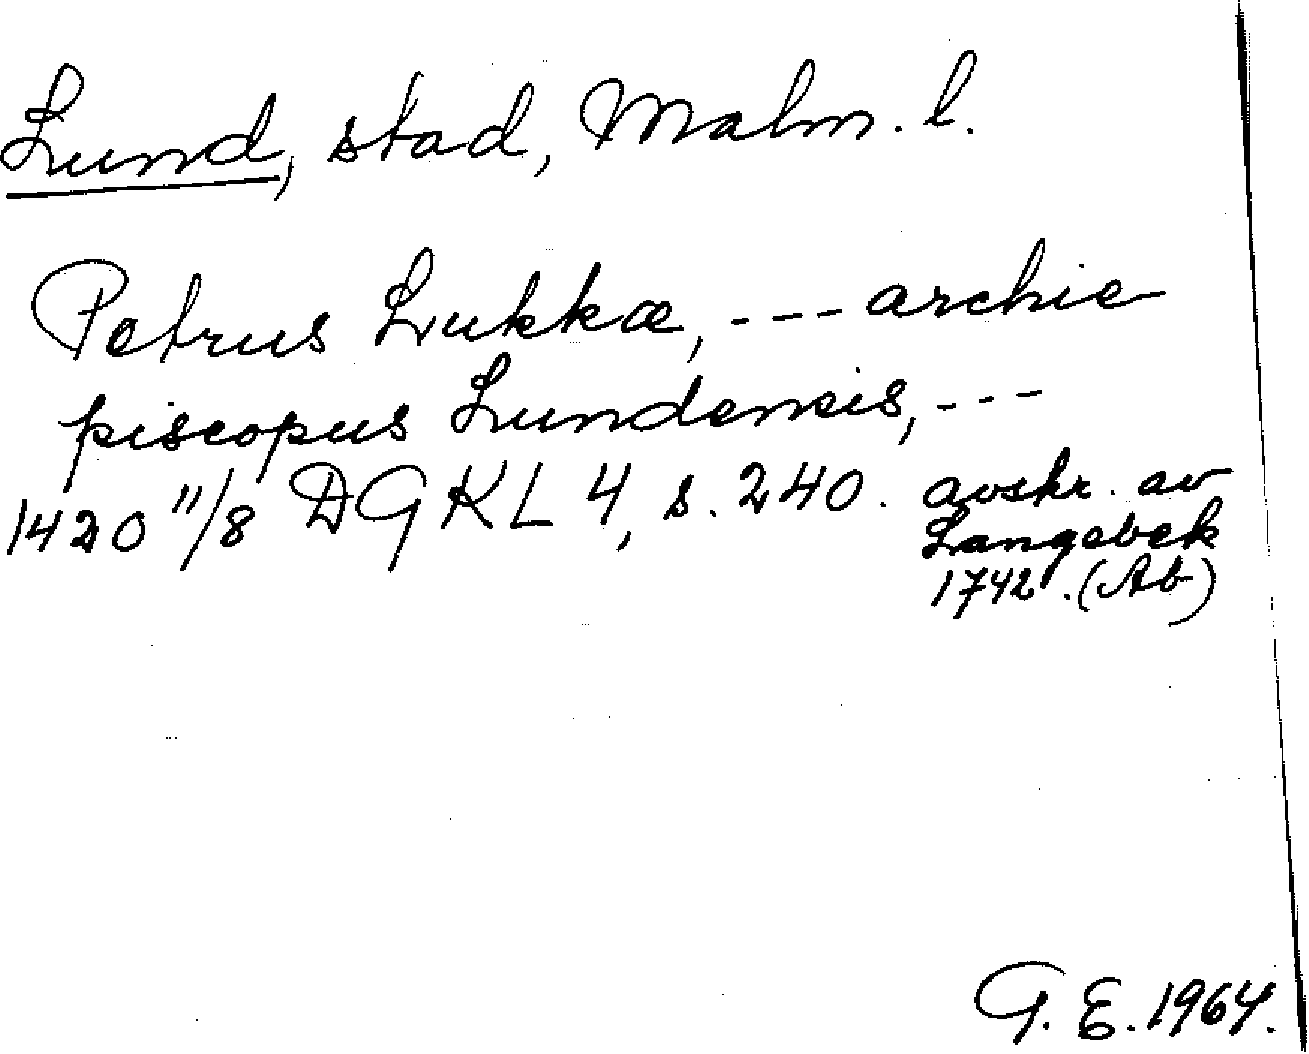 Lund, stad, Malm. l.
Petrus Lukkæ, --- archie
piscopus Lundensis, ---
1420 11/8 DGKL 4, s. 240. avskr. av
Langebek
1742. (Ab)
G. E. 1964.